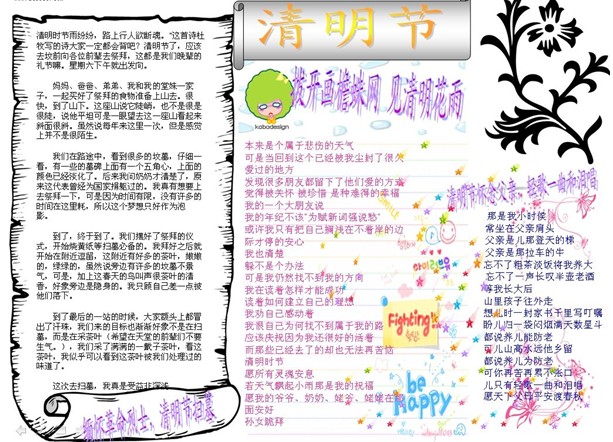 清明节
清明时节雨纷纷，路上行人欲断魂。"这首诗杜
牧写的诗大家一定都会背吧？清明节了，应该
去坟前向各位前辈去祭拜，这都是我们晚辈的
礼节嘛。星期六下午就出发向。
妈妈、爸爸、弟弟、我和我的堂妹一家
子，一起买好了祭拜的食物准备上山去。很
快，到了山下。这座山说它陡峭，也不是很是
很陡，说他平坦可是一眼望去这一座山看起来
斜面很斜。虽然说每年来这里一次，但是感觉
上并不是很陌生。
我们在路途中，看到很多的坟墓，仔细一
看，有一些的墓碑上面有一个五角心，上面的
颜色已经淡化了。后来我问奶奶才清楚了，原
来这代表曾经为国家捐躯过的。我真有想要上
去祭拜一下，可是因为时间有限，没有许多的
时间在这里耗，所以这个梦想只好作为泡
影。
到了，终于到了。我们摆好了祭拜的仪
式，开始烧黄纸等扫墓必备的。我拜好之后就
开始在附近逗留，这附近有好多的茶叶，嫩嫩
的，绿绿的，虽然说旁边有许多的坟墓不景
气。可是，加上这春天的鸟叫声很茶叶的清
香，好象旁边是隐身的。我只顾自己差一点被
他们落下。
到了最后一站的时候，大家额头上都冒
出了汗珠，我们来的目标也渐渐好象不是在扫
墓，而是在采茶叶（希望在天堂的前辈们不要
生气。），我们采了满满的一裁子茶叶，看这
茶叶，我似乎可以看到这茶叶被我们处理过的
味道了。
这次去扫墓，我真是受益非浅
缅怀革命烈士，清明节扫墓
kobadesign
拨开画檐蛛网 见清明花雨
本来是个属于悲伤的天气
可是当回到这个已经被我尘封了很久
爱过的地方
发现很多朋友都留下了他们爱的方式
觉得被关怀 被珍惜 是种难得的幸福
我的一个大朋友说
我的年纪不该"为赋新词强说愁"
或许我只有把自己搁浅在不着岸的边
际才停的安心
我也清楚
躲不是个办法
可是我仍然找不到我的方向
我在读着怎样才能成功
读着如何建立自己的理想
我劝自己感动着
我恨自己为何找不到属于我的路
应该庆祝因为我还很好的活着
而那些已经去了的却也无法再苦恼
清明时节
愿所有灵魂安息
若天气飘起小雨那是我的祝福
愿我的爷爷、奶奶、姥爷、姥姥在
面安好
孙女跪拜
Fighting
be
Happy
清明节怀念父亲，轻歌一曲和泪唱
那是我小时候
常坐在父亲肩头
父亲是儿那登天的梯
父亲是那拉车的牛
忘不了粗茶淡饭将我养大
忘不了一声长叹半壶老酒
等我长大后
山里孩子往外走
想儿时一封家书千里写叮嘱
盼儿归一袋闷烟满天数星斗
都说养儿能防老
可儿山高水远他乡留
都说养儿为防老
可你再苦再累不张口
儿只有轻歌一曲和泪唱
愿天下父母平安渡春秋